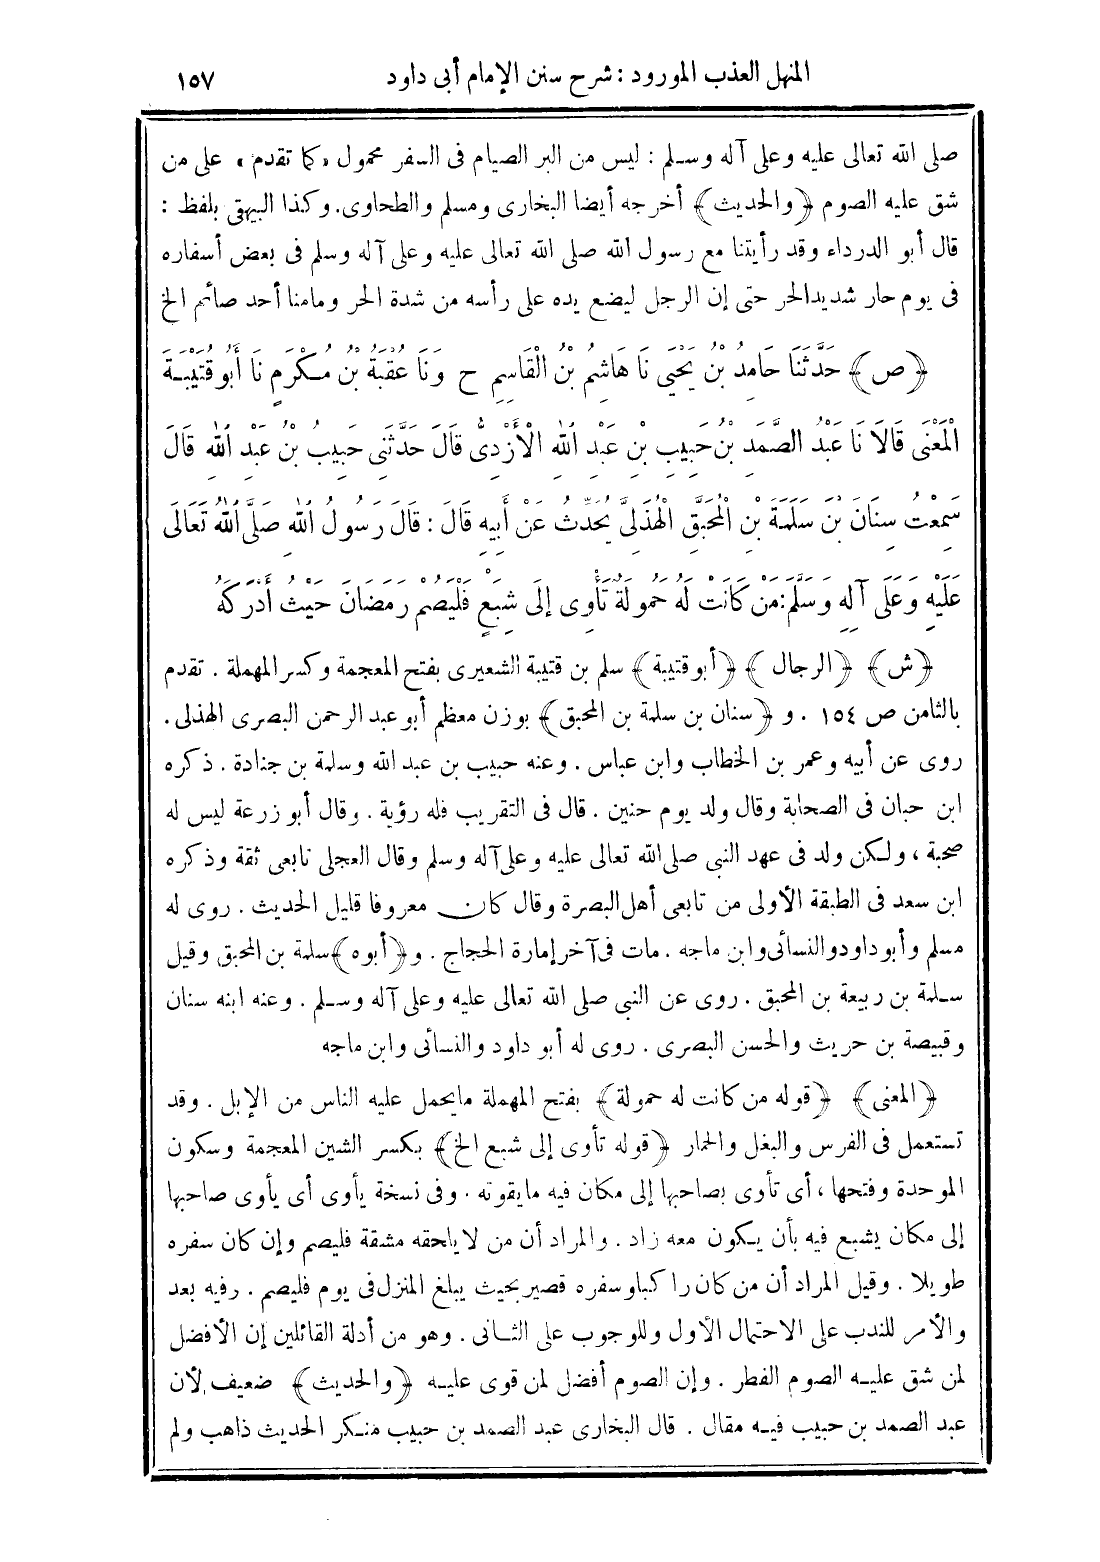 المنهل العذب المورود : شرح سنن الإمام أبى داود ١٥٧
صلى الله تعالى عليه وعلى آله وسلم : ليس من البر الصيام فى السفر محمول «كما تقدم» على من
شق عليه الصوم ﴿والحديث﴾ أخرجه أيضا البخارى ومسلم والطحاوى. وكذا البيهقى بلفظ :
قال أبو الدرداء وقد رأيتنا مع رسول الله صلى الله تعالى عليه وعلى آله وسلم فى بعض أسفاره
فى يوم حار شديد الحر حتى إن الرجل ليضع يده على رأسه من شدة الحر ومامنا أحد صائم الخ
﴿ص﴾ حَدَّثَنَا حَامِدُ بْنُ يَحْيَى نَا هَاشِمُ بْنُ الْقَاسِمِ ح وَنَا عُقْبَةُ بْنُ مُكْرَمٍ نَا أَبُو قُتَيْبَةَ
الْمَعْنَى قَالَا نَا عَبْدُ الصَّمَدِ بْنُ حَبِيبِ بْنِ عَبْدِ اللهِ الْأَزْدِىُّ قَالَ حَدَّثَنِى حَبِيبُ بْنُ عَبْدِ اللهِ قَالَ
سَمِعْتُ سِنَانَ بْنَ سَلَمَةَ بْنِ الْمُحَبَّقِ الْهُذَلِىَّ يُحَدِّثُ عَنْ أَبِيهِ قَالَ : قَالَ رَسُولُ اللهِ صَلَّى اللهُ تَعَالَى
عَلَيْهِ وَعَلَى آلِهِ وَسَلَّمَ: مَنْ كَانَتْ لَهُ حَمُولَةٌ تَأْوِى إِلَى شِبَعٍ فَلْيَصُمْ رَمَضَانَ حَيْثُ أَدْرَكَهُ
﴿ش﴾ ﴿الرجال﴾ ﴿أبو قتيبة﴾ سلم بن قتيبة الشعيرى بفتح المعجمة وكسر المهملة . تقدم
بالثامن ص ١٥٤ . و﴿سنان بن سلمة بن المحبق﴾ بوزن معظم أبو عبد الرحمن البصرى الهذلى .
روى عن أبيه وعمر بن الخطاب وابن عباس . وعنه حبيب بن عبد الله وسلمة بن جنادة . ذكره
ابن حبان فى الصحابة وقال ولد يوم حنين . قال فى التقريب فله رؤية . وقال أبو زرعة ليس له
صحبة ، ولكن ولد فى عهد النبى صلى الله تعالى عليه وعلى آله وسلم وقال العجلى تابعى ثقة وذكره
ابن سعد فى الطبقة الأولى من تابعى أهل البصرة وقال كان معروفا قليل الحديث . روى له
مسلم وأبو داود والنسائى وابن ماجه . مات فى آخر إمارة الحجاج . و﴿أبوه﴾ سلمة بن المحبق وقيل
سلمة بن ربيعة بن المحبق . روى عن النبى صلى الله تعالى عليه وعلى آله وسلم . وعنه ابنه سنان
وقبيصة بن حريث والحسن البصرى . روى له أبو داود والنسائى وابن ماجه
﴿المعنى﴾ ﴿قوله من كانت له حمولة﴾ بفتح المهملة مايحمل عليه الناس من الإبل . وقد
تستعمل فى الفرس والبغل والحمار ﴿قوله تأوى إلى شبع الخ﴾ بكسر الشين المعجمة وسكون
الموحدة وفتحها ، أى تأوى بصاحبها إلى مكان فيه مايقوته . وفى نسخة يأوى أى يأوى صاحبها
إلى مكان يشبع فيه بأن يكون معه زاد . والمراد أن من لايلحقه مشقة فليصم وإن كان سفره
طويلا . وقيل المراد أن من كان راكبا وسفره قصير بحيث يبلغ المنزل فى يوم فليصم . رفيه بعد
والأمر للندب على الاحتمال الأول وللوجوب على الثانى . وهو من أدلة القائلين إن الأفضل
لمن شق عليه الصوم الفطر . وإن الصوم أفضل لمن قوى عليه ﴿والحديث﴾ ضعيف لأن
عبد الصمد بن حبيب فيه مقال . قال البخارى عبد الصمد بن حبيب منكر الحديث ذاهب ولم